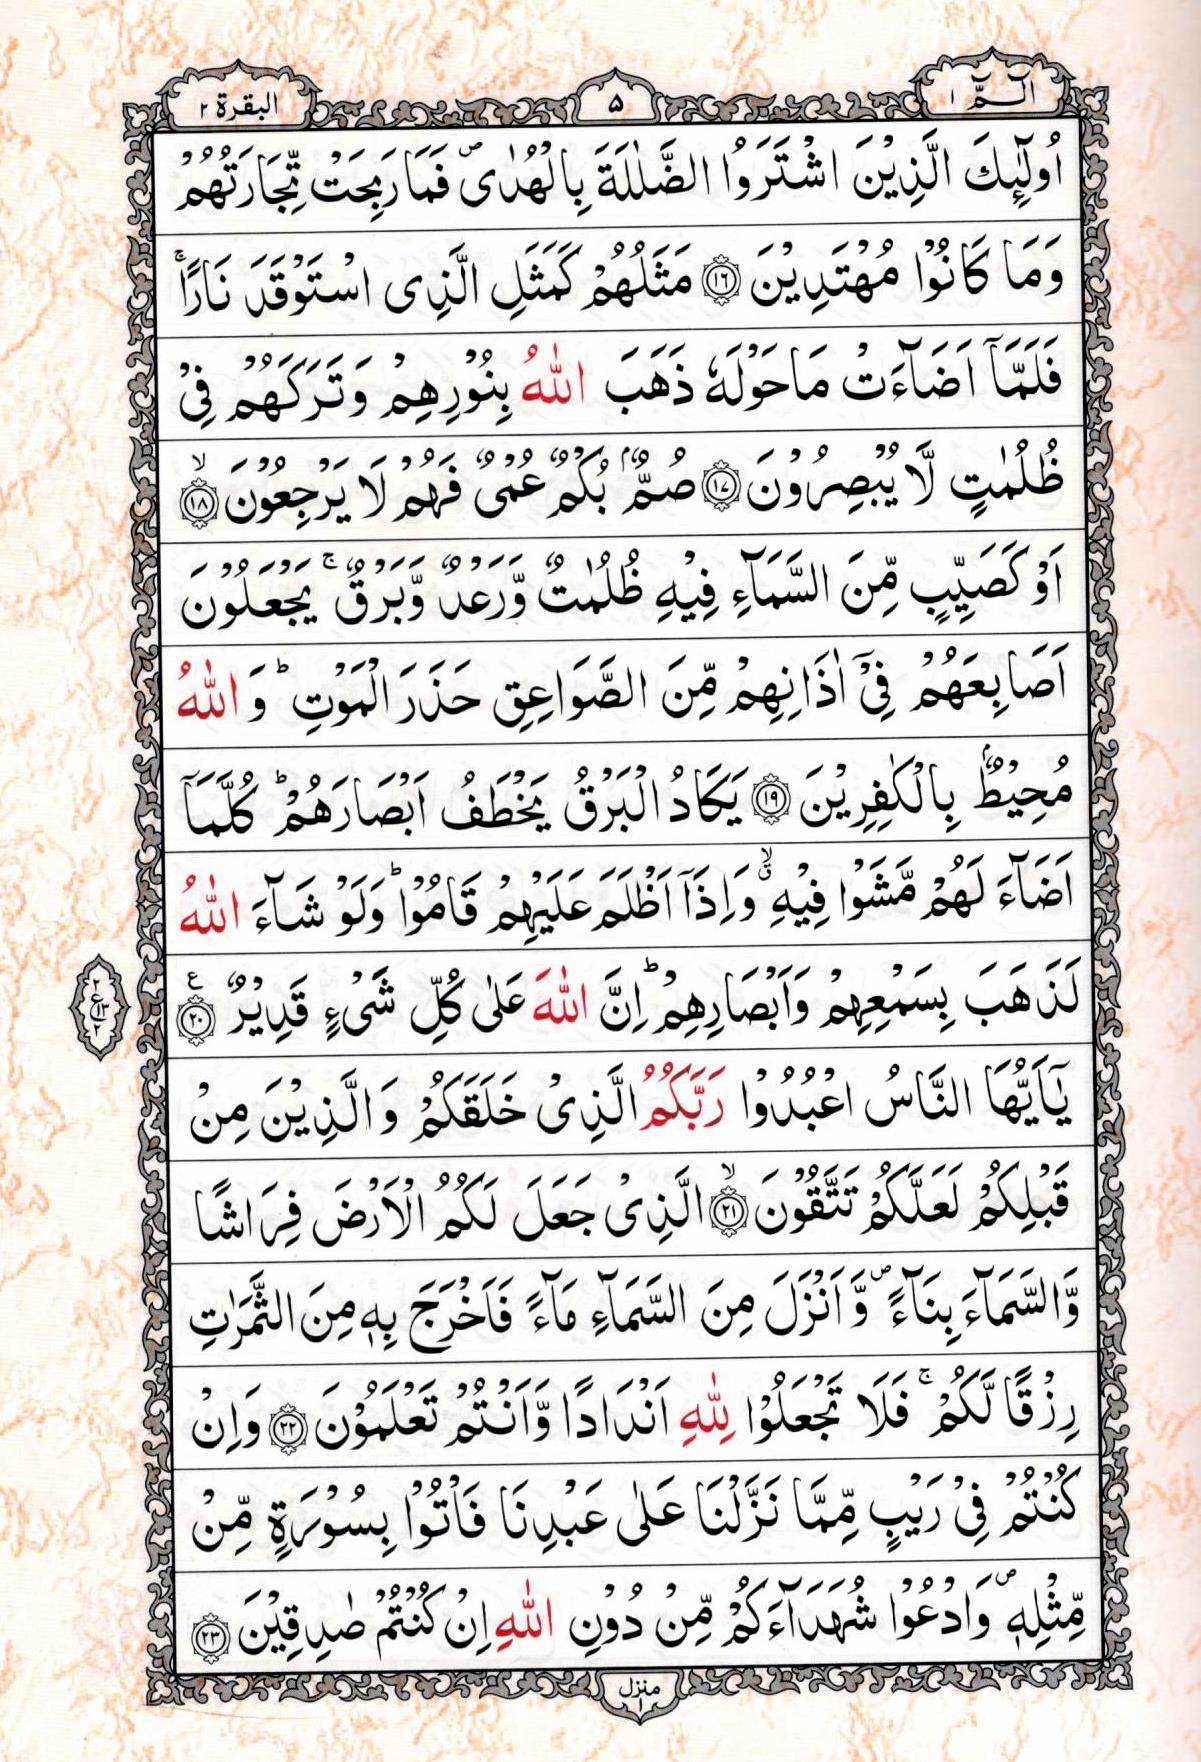 الٓـمّٓ ١
۵
البقرة ٢
اُولٰٓئِكَ الَّذِيْنَ اشْتَرَوُا الضَّلٰلَةَ بِالْهُدٰى ۪ فَمَا رَبِحَتْ تِّجَارَتُهُمْ
وَمَا كَانُوْا مُهْتَدِيْنَ ۝١٦ مَثَلُهُمْ كَمَثَلِ الَّذِى اسْتَوْقَدَ نَارًا ۚ
فَلَمَّآ اَضَآءَتْ مَا حَوْلَهٗ ذَهَبَ اللّٰهُ بِنُوْرِهِمْ وَتَرَكَهُمْ فِىْ
ظُلُمٰتٍ لَّا يُبْصِرُوْنَ ۝١٧ صُمٌّۢ بُكْمٌ عُمْىٌ فَهُمْ لَا يَرْجِعُوْنَ ۙ۝١٨
اَوْ كَصَيِّبٍ مِّنَ السَّمَآءِ فِيْهِ ظُلُمٰتٌ وَّرَعْدٌ وَّبَرْقٌ ۚ يَجْعَلُوْنَ
اَصَابِعَهُمْ فِىْٓ اٰذَانِهِمْ مِّنَ الصَّوَاعِقِ حَذَرَ الْمَوْتِ ؕ وَ اللّٰهُ
مُحِيْطٌۢ بِالْكٰفِرِيْنَ ۝١٩ يَكَادُ الْبَرْقُ يَخْطَفُ اَبْصَارَهُمْ ؕ كُلَّمَآ
اَضَآءَ لَهُمْ مَّشَوْا فِيْهِ ۙۗ وَاِذَآ اَظْلَمَ عَلَيْهِمْ قَامُوْا ؕ وَلَوْ شَآءَ اللّٰهُ
لَذَهَبَ بِسَمْعِهِمْ وَاَبْصَارِهِمْ ؕ اِنَّ اللّٰهَ عَلٰى كُلِّ شَىْءٍ قَدِيْرٌ ۝٢٠ ع
٢
ع
١٣
٢
يٰٓاَيُّهَا النَّاسُ اعْبُدُوْا رَبَّكُمُ الَّذِىْ خَلَقَكُمْ وَالَّذِيْنَ مِنْ
قَبْلِكُمْ لَعَلَّكُمْ تَتَّقُوْنَ ۙ۝٢١ الَّذِىْ جَعَلَ لَكُمُ الْاَرْضَ فِرَاشًا
وَّالسَّمَآءَ بِنَآءً ۪ وَّاَنْزَلَ مِنَ السَّمَآءِ مَآءً فَاَخْرَجَ بِهٖ مِنَ الثَّمَرٰتِ
رِزْقًا لَّكُمْ ۚ فَلَا تَجْعَلُوْا لِلّٰهِ اَنْدَادًا وَّاَنْتُمْ تَعْلَمُوْنَ ۝٢٢ وَاِنْ
كُنْتُمْ فِىْ رَيْبٍ مِّمَّا نَزَّلْنَا عَلٰى عَبْدِنَا فَاْتُوْا بِسُوْرَةٍ مِّنْ
مِّثْلِهٖ ۪ وَادْعُوْا شُهَدَآءَكُمْ مِّنْ دُوْنِ اللّٰهِ اِنْ كُنْتُمْ صٰدِقِيْنَ ۝٢٣
منزل ١